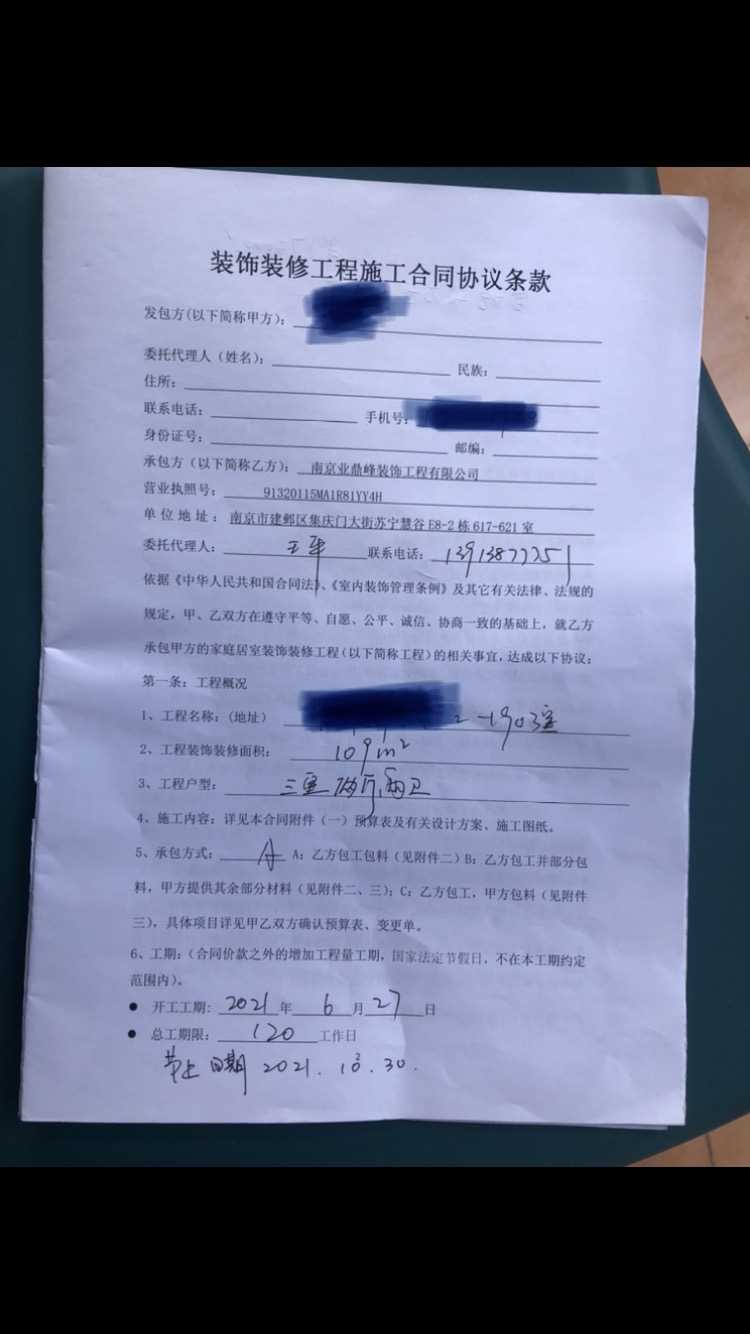 装饰装修工程施工合同协议条款
发包方(以下简称甲方):
委托代理人(姓名): 民族:
住所:
联系电话: 手机号:
身份证号: 邮编:
承包方(以下简称乙方): 南京业鼎峰装饰工程有限公司
营业执照号: 91320115MA1R81YY4H
单位地址: 南京市建邺区集庆门大街苏宁慧谷E8-2栋617-621室
委托代理人: 联系电话: 13913877251
依据《中华人民共和国合同法》、《室内装饰管理条例》及其它有关法律、法规的
规定,甲、乙双方在遵守平等、自愿、公平、诚信、协商一致的基础上,就乙方
承包甲方的家庭居室装饰装修工程(以下简称工程)的相关事宜,达成以下协议:
第一条:工程概况
1、工程名称:(地址) 2-1903室
2、工程装饰装修面积: 109m²
3、工程户型: 三室两厅两卫
4、施工内容:详见本合同附件(一)预算表及有关设计方案、施工图纸。
5、承包方式: A A:乙方包工包料(见附件二)B:乙方包工并部分包
料,甲方提供其余部分材料(见附件二、三);C:乙方包工,甲方包料(见附件
三),具体项目详见甲乙双方确认预算表、变更单。
6、工期:(合同价款之外的增加工程量工期,国家法定节假日,不在本工期约定
范围内)。
● 开工工期: 2021年 6月27日
● 总工期限: 120 工作日
日期 2021. 10. 30.